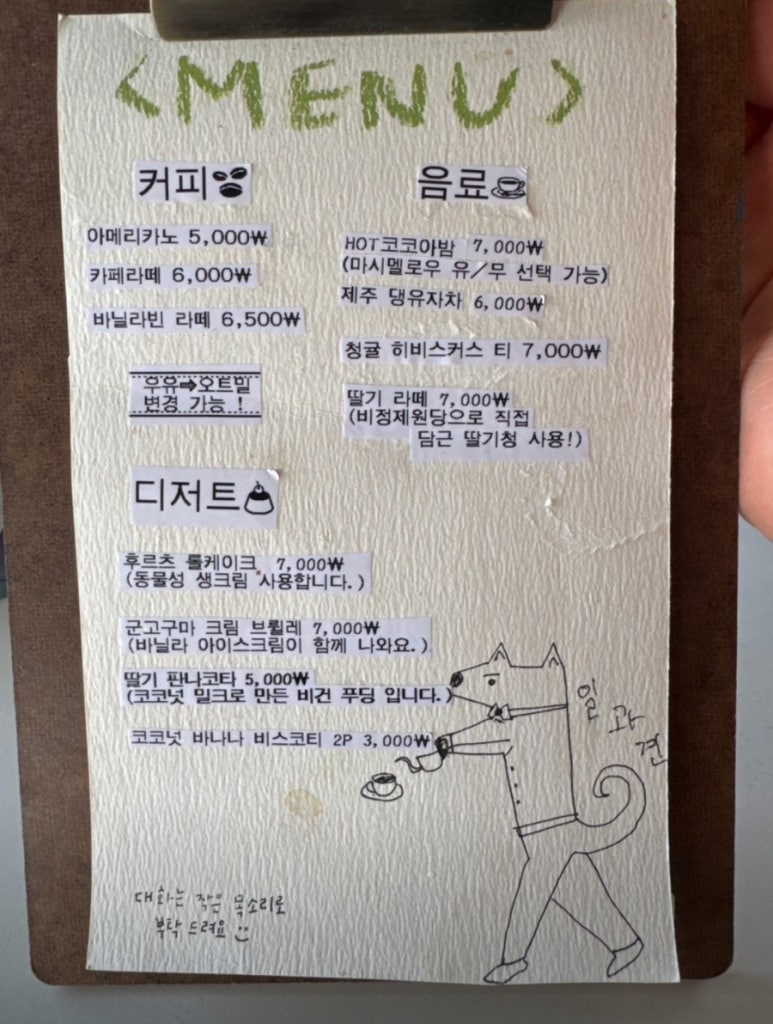 <MENU>
커피
아메리카노 5,000₩
카페라떼 6,000₩
바닐라빈 라떼 6,500₩
우유➡오트밀
변경 가능 !
음료
HOT코코아밤 7,000₩
(마시멜로우 유/무 선택 가능)
제주 댕유자차 6,000₩
청귤 히비스커스 티 7,000₩
딸기 라떼 7,000₩
(비정제원당으로 직접
담근 딸기청 사용!)
디저트
후르츠 롤케이크 7,000₩
(동물성 생크림 사용합니다.)
군고구마 크림 브륄레 7,000₩
(바닐라 아이스크림이 함께 나와요.)
딸기 판나코타 5,000₩
(코코넛 밀크로 만든 비건 푸딩 입니다.)
코코넛 바나나 비스코티 2P 3,000₩
일과견
대화는 작은 목소리로
부탁 드려요